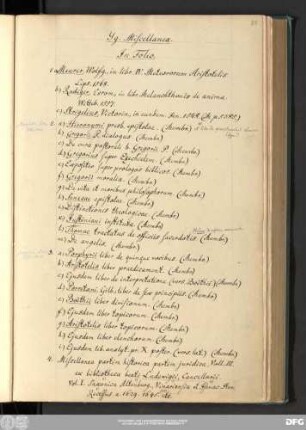 Yg. Miscellanea.
In Folio.
1. Meurer, Wolfg. in libr. IV. Meteororum Aristotelis
Lips. 1568.
b) Rudiger, Esrom. in libr. Melanchthonis de anima.
Witteb. 1557.
c) Strigelius, Victorin. in eundem.
2. a) Hieronymi presb. epistolae. (Membr.)
b) Gregorii P. dialogus (Membr.)
c) De cura pastorali b. Gregorii P. (Membr.)
d) Gregorius super Ezechielem (Membr.)
e) Expositio super prologos biblicos (Membr.)
f) Gregorii moralia. (Membr.)
g) De vita et moribus philosophorum (Membr.)
h) Senecae epistolae (Membr.)
i) Distinctiones theologicae (Membr.)
k) Justiniani instituta (Membr.)
l) Thomae tractatus de officio sacerdotis (Membr.)
m) De angelis (Membr.)
3. a) Porphyrii liber de quinque vocibus (Membr.)
b) Aristotelis liber praedicament. (Membr.)
c) Ejusdem liber de interpretatione (vers. Boethii) (Membr.)
d) Porretani Gilb. liber de sex principiis (Membr.)
e) Boethii liber divisionum. (Membr.)
f) Ejusdem liber topicorum (Membr.)
g) Aristotelis liber topicorum (Membr.)
h) Ejusdem liber elenchorum (Membr.)
i) Ejusdem lib. analyt. pr. & poster (vers. lat.) (Membr.)
4. Miscellanea partim historica partim juridica, Voll. III.
ex bibliotheca beati Ludovigii, Cancellarii
Vol. I. Saxonica Altenburg. Vinariensia et
Recessus a. 1629. 1640. etc.